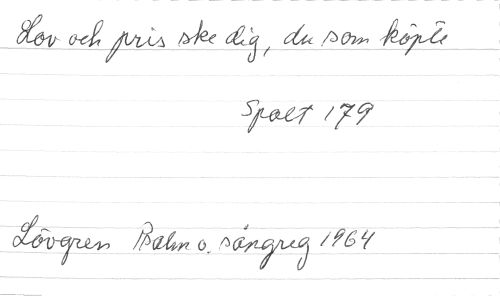 Lov och pris ske dig, du som köpte
Spalt 179
Lövgren Psalm o. sångreg 1964